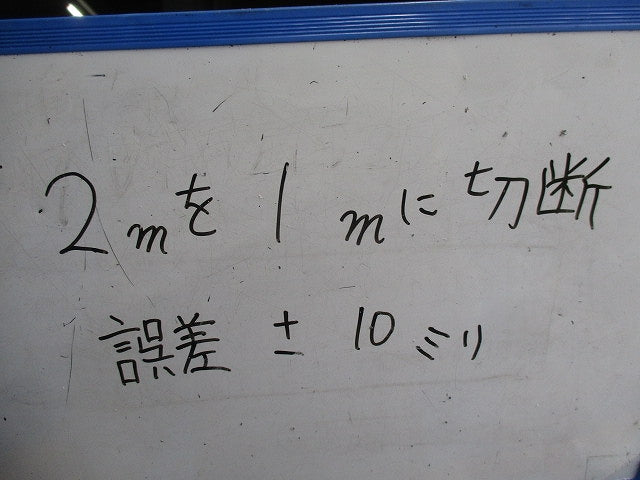 2mを1mに切断
誤差 ± 10ミリ